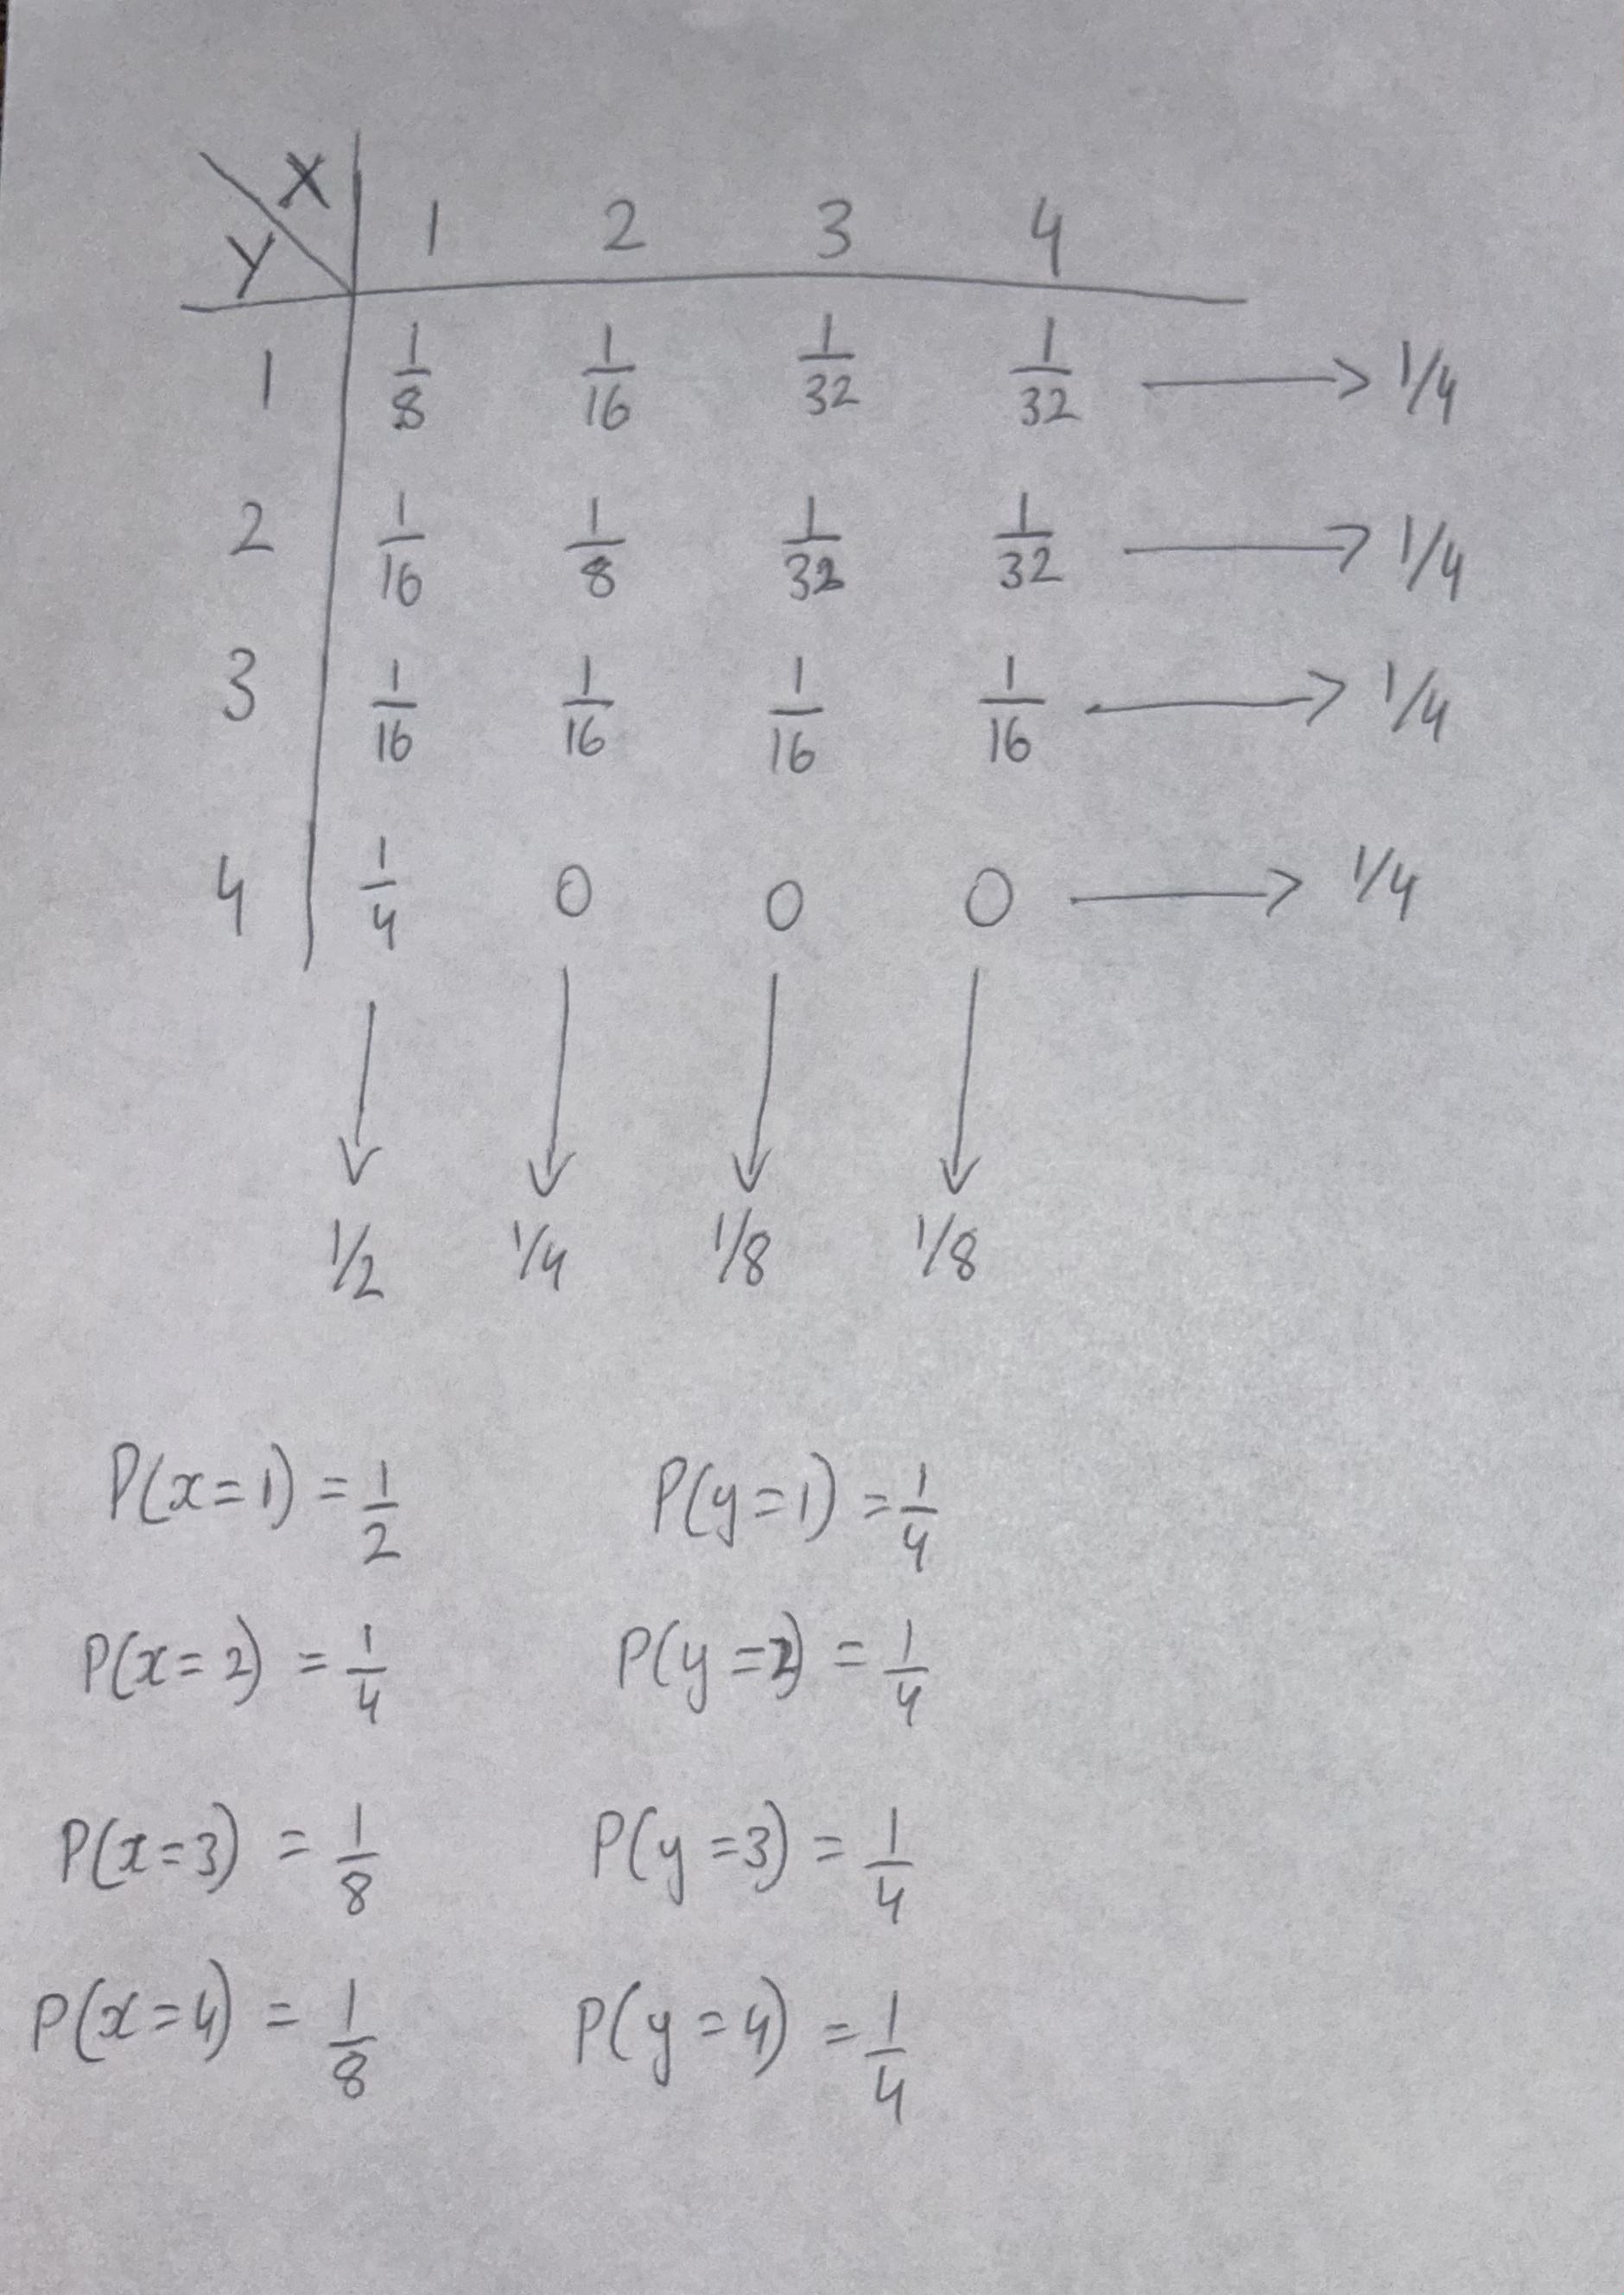 X
Y 1 2 3 4
1 1/8 1/16 1/32 1/32 → 1/4
2 1/16 1/8 1/32 1/32 → 1/4
3 1/16 1/16 1/16 1/16 → 1/4
4 1/4 0 0 0 → 1/4
↓ ↓ ↓ ↓
1/2 1/4 1/8 1/8
P(x=1) = 1/2 P(y=1) = 1/4
P(x=2) = 1/4 P(y=2) = 1/4
P(x=3) = 1/8 P(y=3) = 1/4
P(x=4) = 1/8 P(y=4) = 1/4